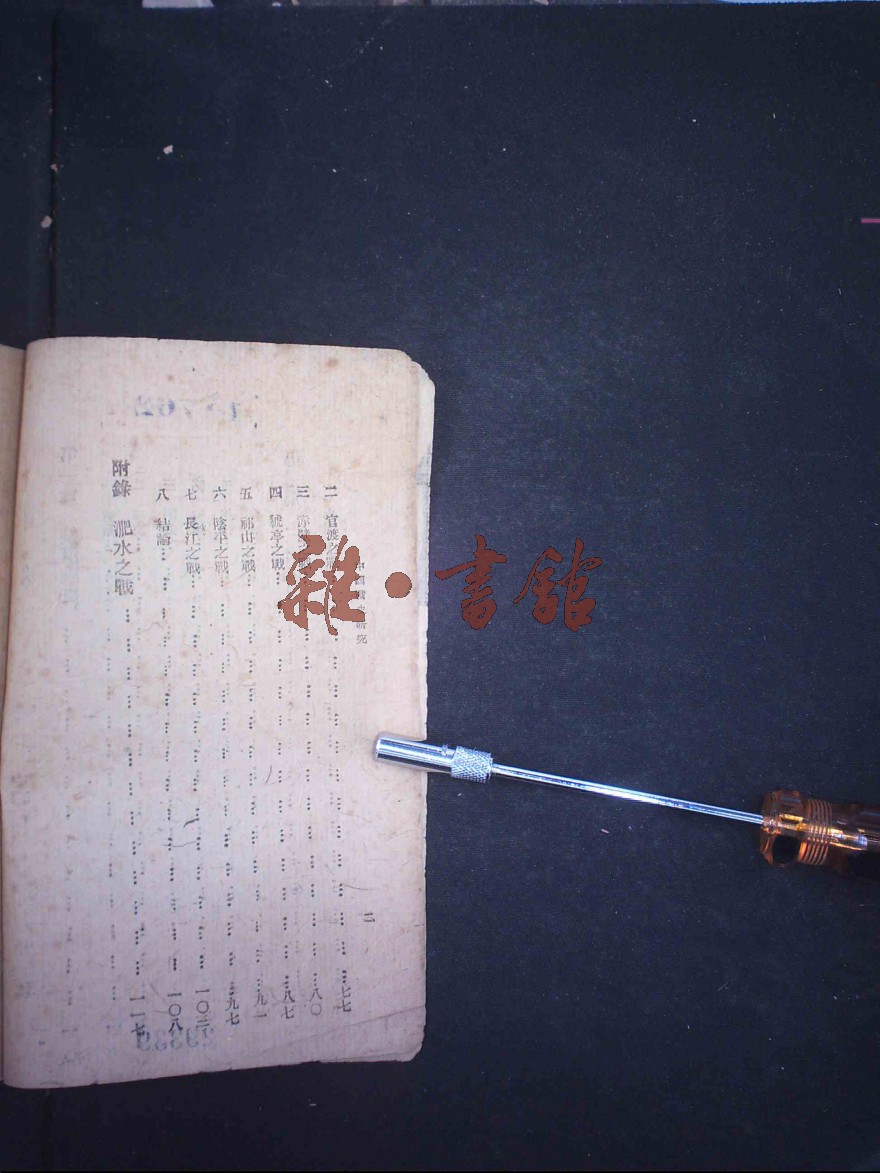 二 官渡之戰 七七
三 赤壁之戰 八〇
四 猇亭之戰 八七
五 祁山之戰 九一
六 陰平之戰 九七
七 長江之戰 一〇三
八 結論 一〇八
附錄 淝水之戰 一一七
二
雜·書館